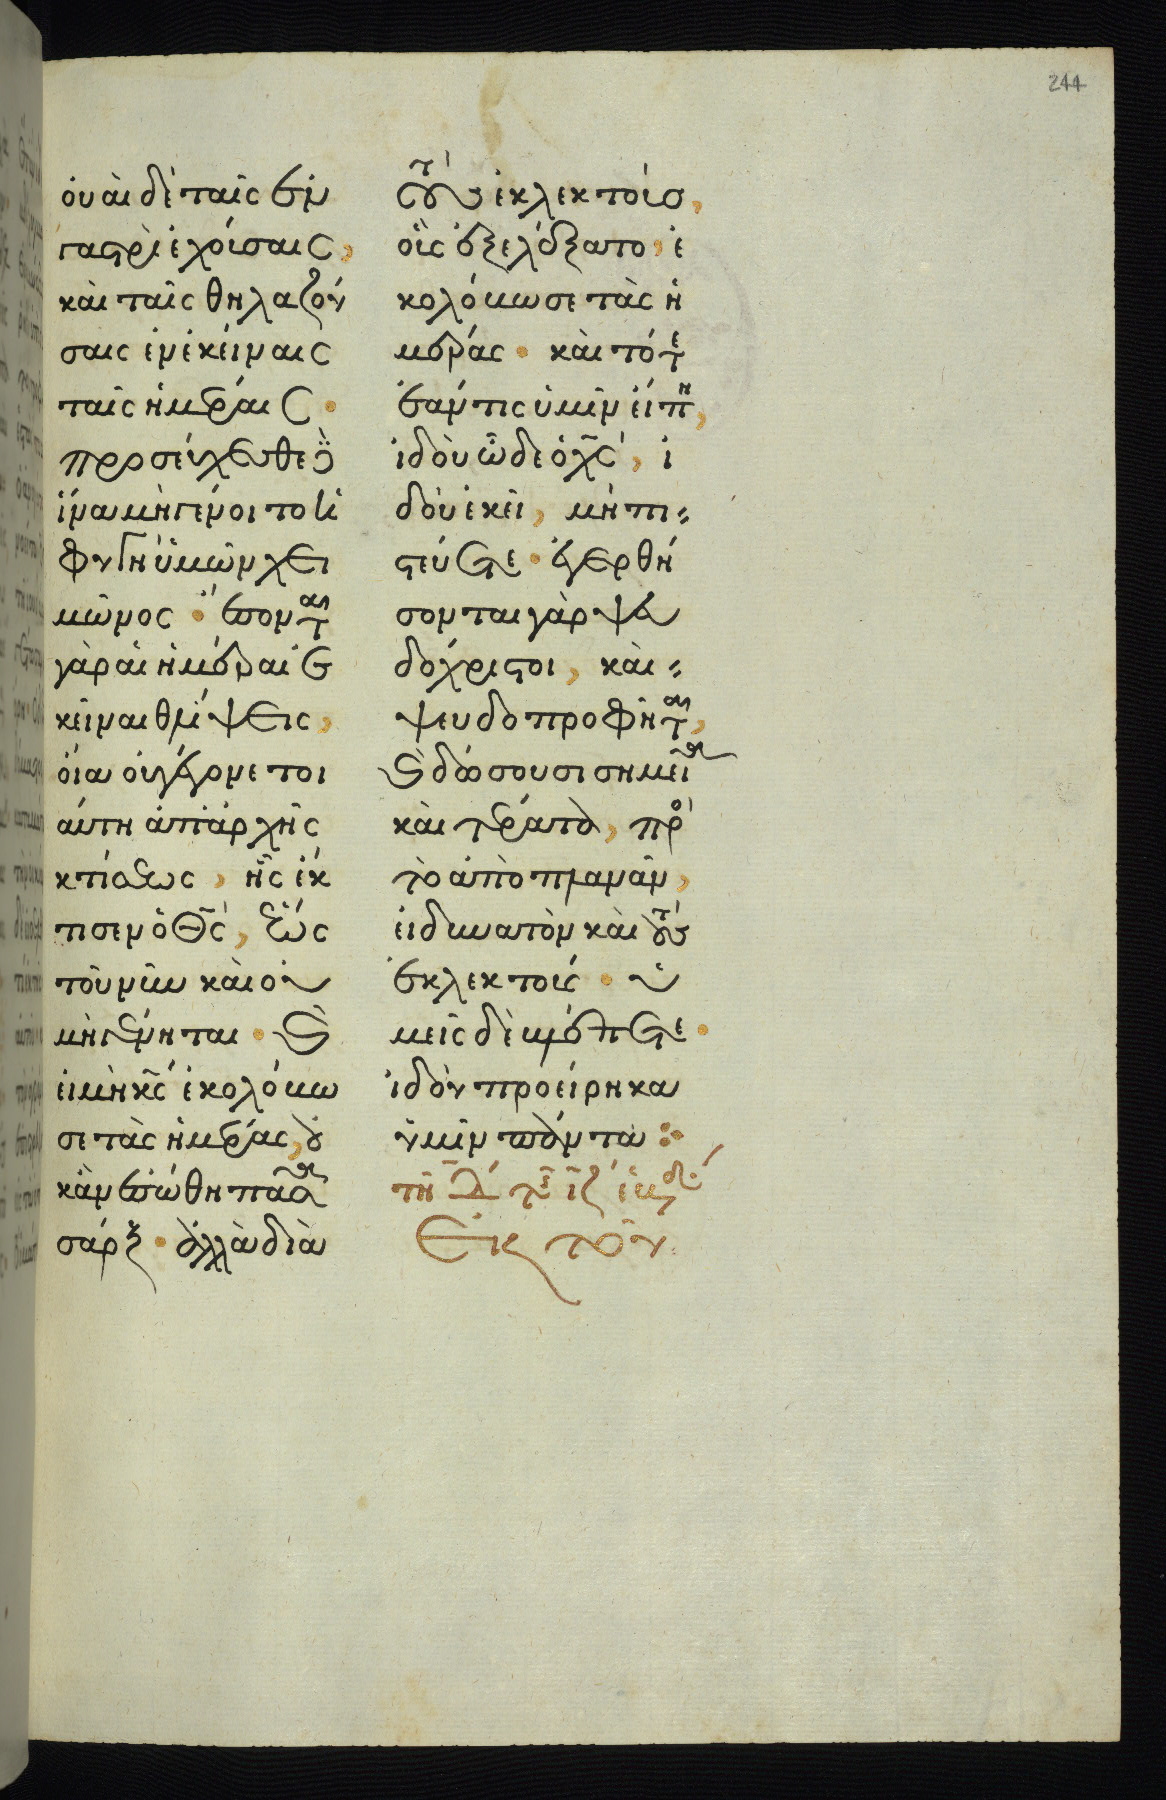 244
ὀυὰι δὲ ταῖς ἐν
γαστρὶ ἐχούσαις,
καὶ ταῖς θηλαζού
σαις ἐν ἐκείναις
ταῖς ἡμέραις.
προσεύχεσθε δὲ
ἵνα μὴ γένοιτο ἡ
φυγὴ ὑμῶν χει
μῶνος. ἔσονται
γὰρ αἱ ἡμέραι ἐ
κεῖναι θλίψεις,
οἵα οὐ γέγονε τοι
αύτη ἀπ' ἀρχῆς
κτίσεως, ἧς ἔκ
τισεν ὁ θς, ἕως
τοῦ νῦν καὶ οὐ
μὴ γένηται. καὶ
εἰ μὴ κς ἐκολόβω
σε τὰς ἡμέρας, οὐ
κ ἂν ἐσώθη πᾶσα
σάρξ. ἀλλὰ διὰ
τοὺς ἐκλεκτοὺς,
οὓς ἐξελέξατο, ἐ
κολόβωσε τὰς ἡ
μέρας. καὶ τότε
ἐάν τις ὑμῖν εἴπῃ,
ἰδοὺ ὧδε ὁ χς, ἰ
δοὺ ἐκεῖ, μὴ πι
στεύετε. ἐγερθή
σονται γὰρ ψευ
δόχριστοι, καὶ
ψευδοπροφῆται,
καὶ δώσουσι σημεῖα
καὶ τέρατα, πρὸς
τὸ ἀποπλανᾶν,
εἰ δυνατὸν καὶ τοὺς
ἐκλεκτούς. ὑ
μεῖς δὲ βλέπετε.
ἰδοὺ προείρηκα
ὑμῖν πάντα